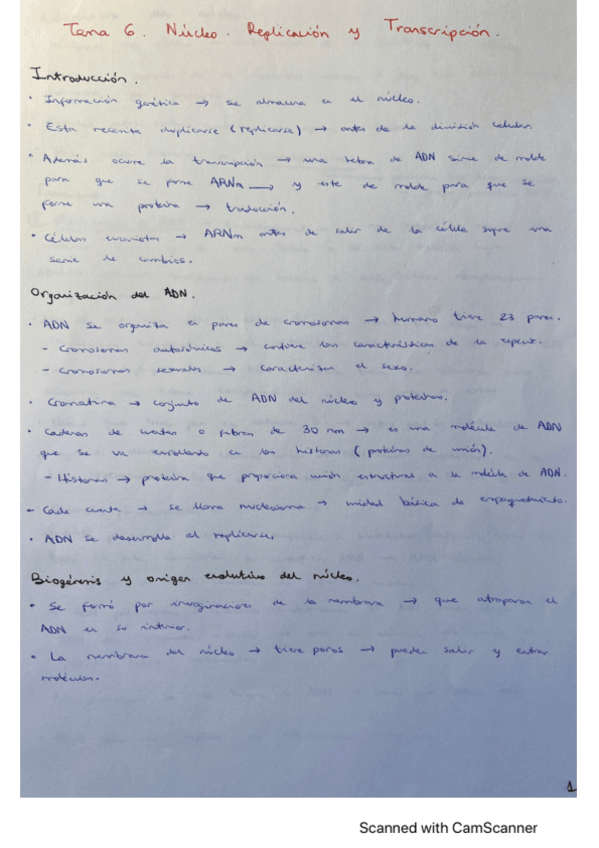 Tema 6. Núcleo. Replicación y Transcripción.
Introducción.
• Información genética → se almacena en el núcleo.
• Esta necesita duplicarse (replicarse) → antes de la división celular.
• Además ocurre la transcripción → una hebra de ADN sirve de molde
para que se forme ARNm → y este de molde para que se
forme una proteína → traducción.
• Células eucariotas → ARNm antes de salir de la célula sufre una
serie de cambios.
Organización del ADN.
• ADN se organiza en pares de cromosomas → humano tiene 23 pares.
- Cromosomas autosómicos → contiene las características de la especie.
- Cromosomas sexuales → caracterizan el sexo.
• Cromatina → conjunto de ADN del núcleo y proteínas.
• Cadenas de cuentas o fibras de 30 nm → es una molécula de ADN
que se va enrollando en las histonas (proteínas de unión).
- Histonas → proteína que proporciona unión estructural a la molécula de ADN.
- Cada cuenta → se llama nucleosoma → unidad básica de empaquetamiento.
• ADN se desenrolla al replicarse.
Biogénesis y origen evolutivo del núcleo.
• Se formó por invaginaciones de la membrana → que atraparon el
ADN en su interior.
• La membrana del núcleo → tiene poros → pueden salir y entrar
moléculas.
1
Scanned with CamScanner